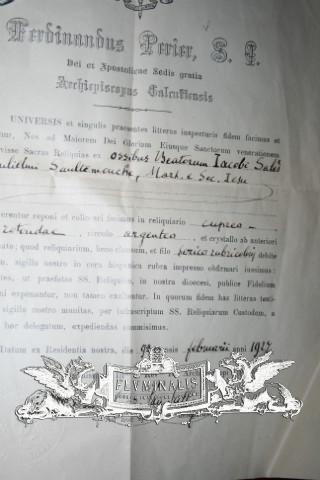 Ferdinandus Perier, S. J.
Dei et Apostolicae Sedis gratia
Archiepiscopus Calcuttensis
UNIVERSIS et singulis praesentes litteras inspecturis fidem facimus et
Nos ad Maiorem Dei Gloriam Eiusque Sanctorum venerationem
Sacras Reliquias ex Ossibus Beatorum Iacobi Sales
Saultemouche, Mart. e Soc. Iesu
reponi et collocari fecimus in reliquiario cupreo
rotundae argenteo et crystallo ab anteriori
quod reliquiarium, bene clausum, et filo serico rubri coloris debite
sigillo nostro in cera hispanica rubra impresso obfirmari iussimus:
ut praefatas SS. Reliquias, in nostra dioecesi, publice Fidelium
exponantur, non tamen exaltentur. In quorum fidem has litteras
sigillo nostro munitas, per infrascriptum SS. Reliquiarum Custodem, a
hoc delegatum, expediendas commisimus.
Datum ex Residentia nostra, die mensis februarii anni 1927
FLUMINALIS